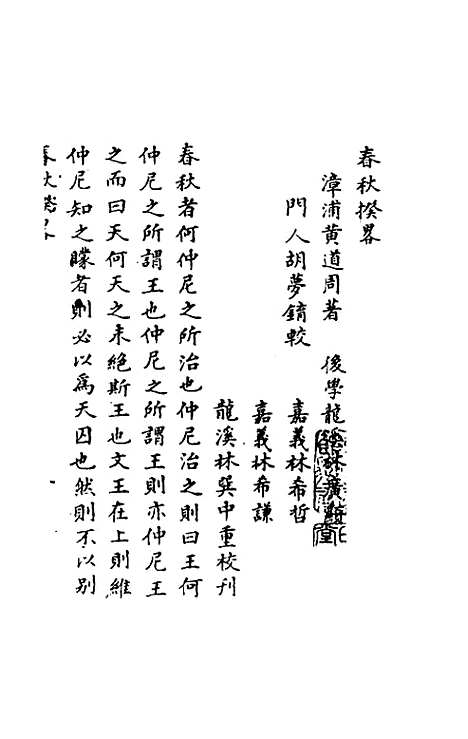 春秋揆畧
漳浦黃道周著 後學龍溪林廣
門人胡夢錥較 嘉義林希哲
嘉義林希謙
龍溪林巽中重校刋
春秋者何仲尼之所治也仲尼治之則曰王何
仲尼之所謂王也仲尼之所謂王則亦仲尼王
之而曰天何天之未絕斯王也文王在上則維
仲尼知之矇者則必以爲天囚也然則不以别
春秋揆畧